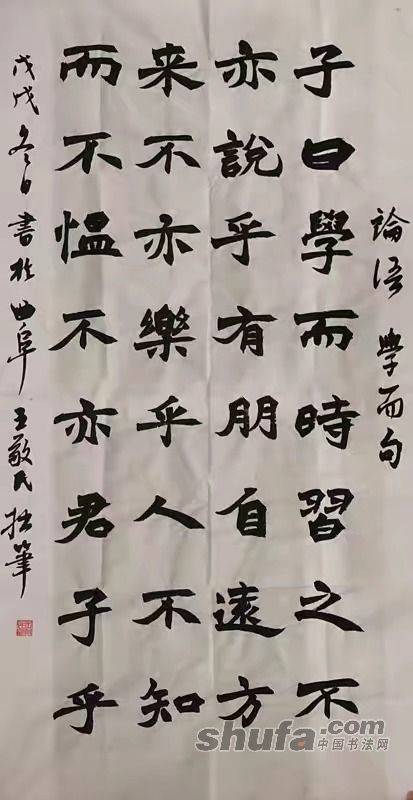 論語 學而句
子曰學而時習之不
亦說乎有朋自遠方
来不亦樂乎人不知
而不愠不亦君子乎
戊戌冬日書於曲阜王敬民拙筆
shufa.com
中国书法网